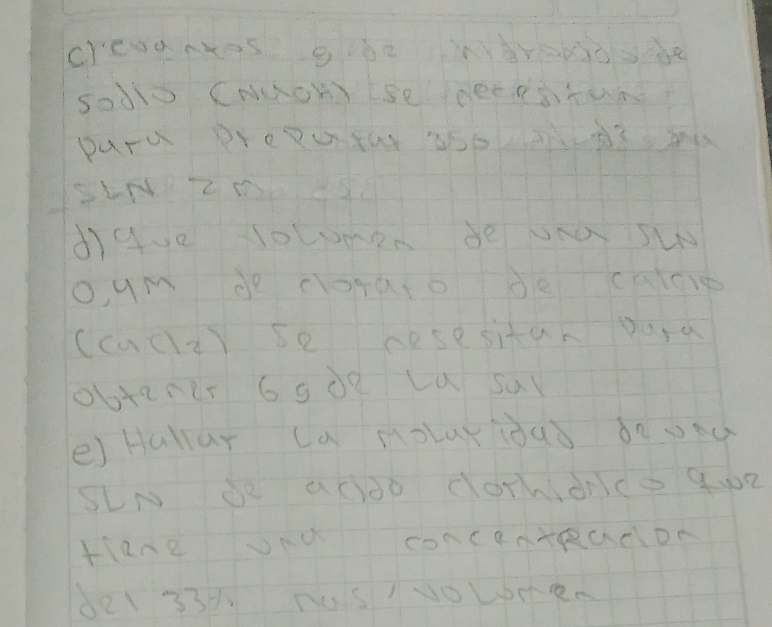 c) cuantos g de hidroxido de
sodio (NaOH) se necesitan
para preparar 350 ml de una
SLN 2 m
d) que volumen de una SLN
0,4M de cloraro de calcio
(CaCl2) se nesesitan para
obtener 6 g de La sal
e) Hallar La molaridad de una
SLN de acido clorhidrico que
tiene una concentracion
del 33% mas/volumen